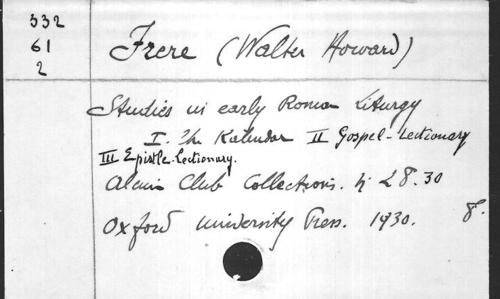 332
61
2
Frere (Walter Howard)
Studies in early Roman Liturgy
I. The Kalendar II Gospel-Lectionary
III Epistle-Lectionary.
Alcuin Club Collections. 28.30
Oxford University Press. 1930. 8.